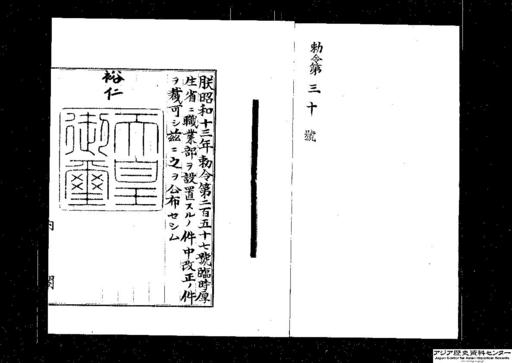 勅令第三十號
朕昭和十三年勅令第二百五十七號臨時厚
生省ニ職業部ヲ設置スルノ件中改正ノ件
ヲ裁可シ茲ニ之ヲ公布セシム
裕仁
天皇
御璽
内閣
アジア歴史資料センター
Japan Center for Asian Historical Records